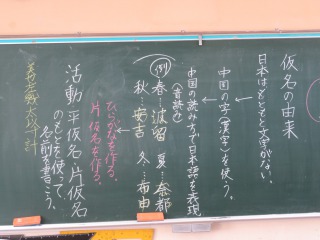 仮名の由来
日本はもともと文字がない。
↓
中国の字(漢字)を使う。
↓
中国の読み方で日本語を表現
(音読み)
例 春…波留 夏…奈都
秋…安吉 冬…布由
↓
ひらがなを作る。
片仮名を作る。
活動 平仮名・片仮名
のもとを使って、
名前を書こう。